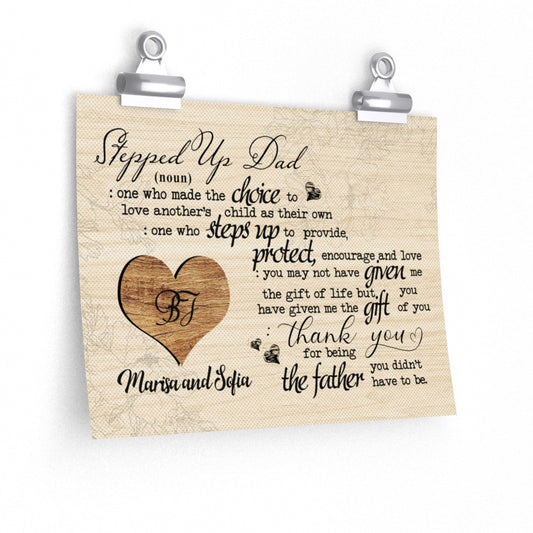 Stepped Up Dad
(noun)
: one who made the choice to
love another's child as their own
: one who steps up to provide,
protect, encourage and love
: you may not have given me
the gift of life but, you
have given me the gift of you
: thank you
for being
the father you didn't
have to be.
BJ
Marisa and Sofia